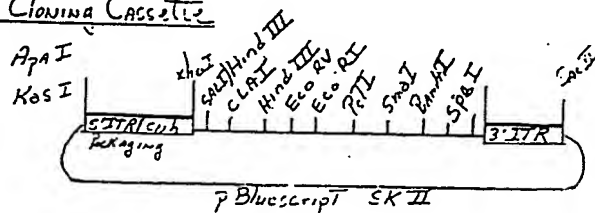 Cloning Cassette
ApA I
KosI
XhoI
SALI/Hind III
CLAI
Hind III
Eco RV
Eco RI
PstI
SmaI
BamHI
SpeI
SacII
5'ITR/enh
Packaging
3'ITR
pBluescript SK II